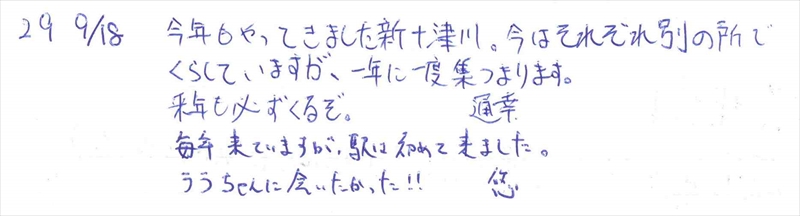 29 9/18 今年もやってきました新十津川。今はそれぞれ別の所で
くらしていますが、一年に一度集つまります。
来年も必ずくるぞ。 通幸
毎年来ていますが、駅は初めて来ました。
ううちゃんに会いたかった!! 悠